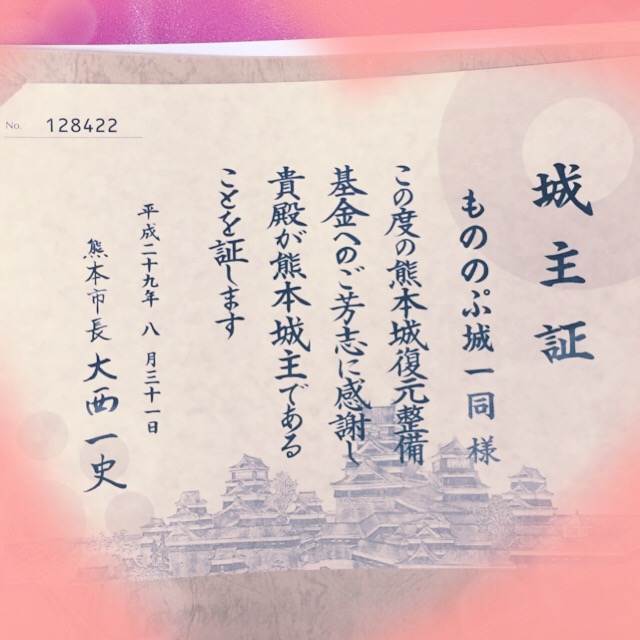 No. 128422
城主証
もののぷ城一同様
この度の熊本城復元整備
基金へのご芳志に感謝し
貴殿が熊本城主である
ことを証します
平成二十九年八月三十一日
熊本市長 大西一史